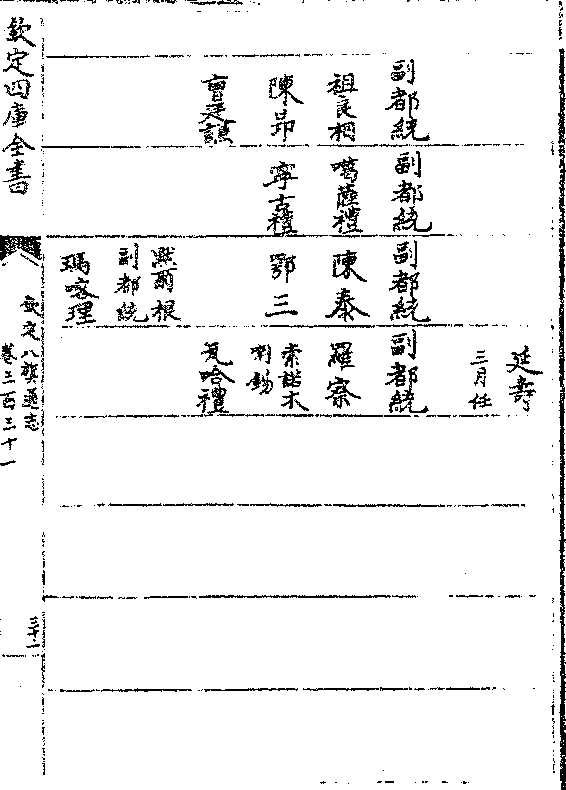 延壽
三月任
副都統 副都統 副都統 副都統
祖良桐 噶薩禮 陳泰 羅察
陳昴 寧古禮 鄂三 索諾木
喇錫
曹廷 瓦哈禮
默爾根
副都統
瑪喀理
欽定四庫全書
欽定八旗通志
卷三百三十一
三十一